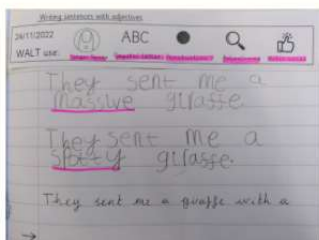 Writing sentences with adjectives
24/11/2022
WALT use:
ABC
They sent me a
massive giraffe.
They sent me a
spotty giraffe.
They sent me a giraffe with a